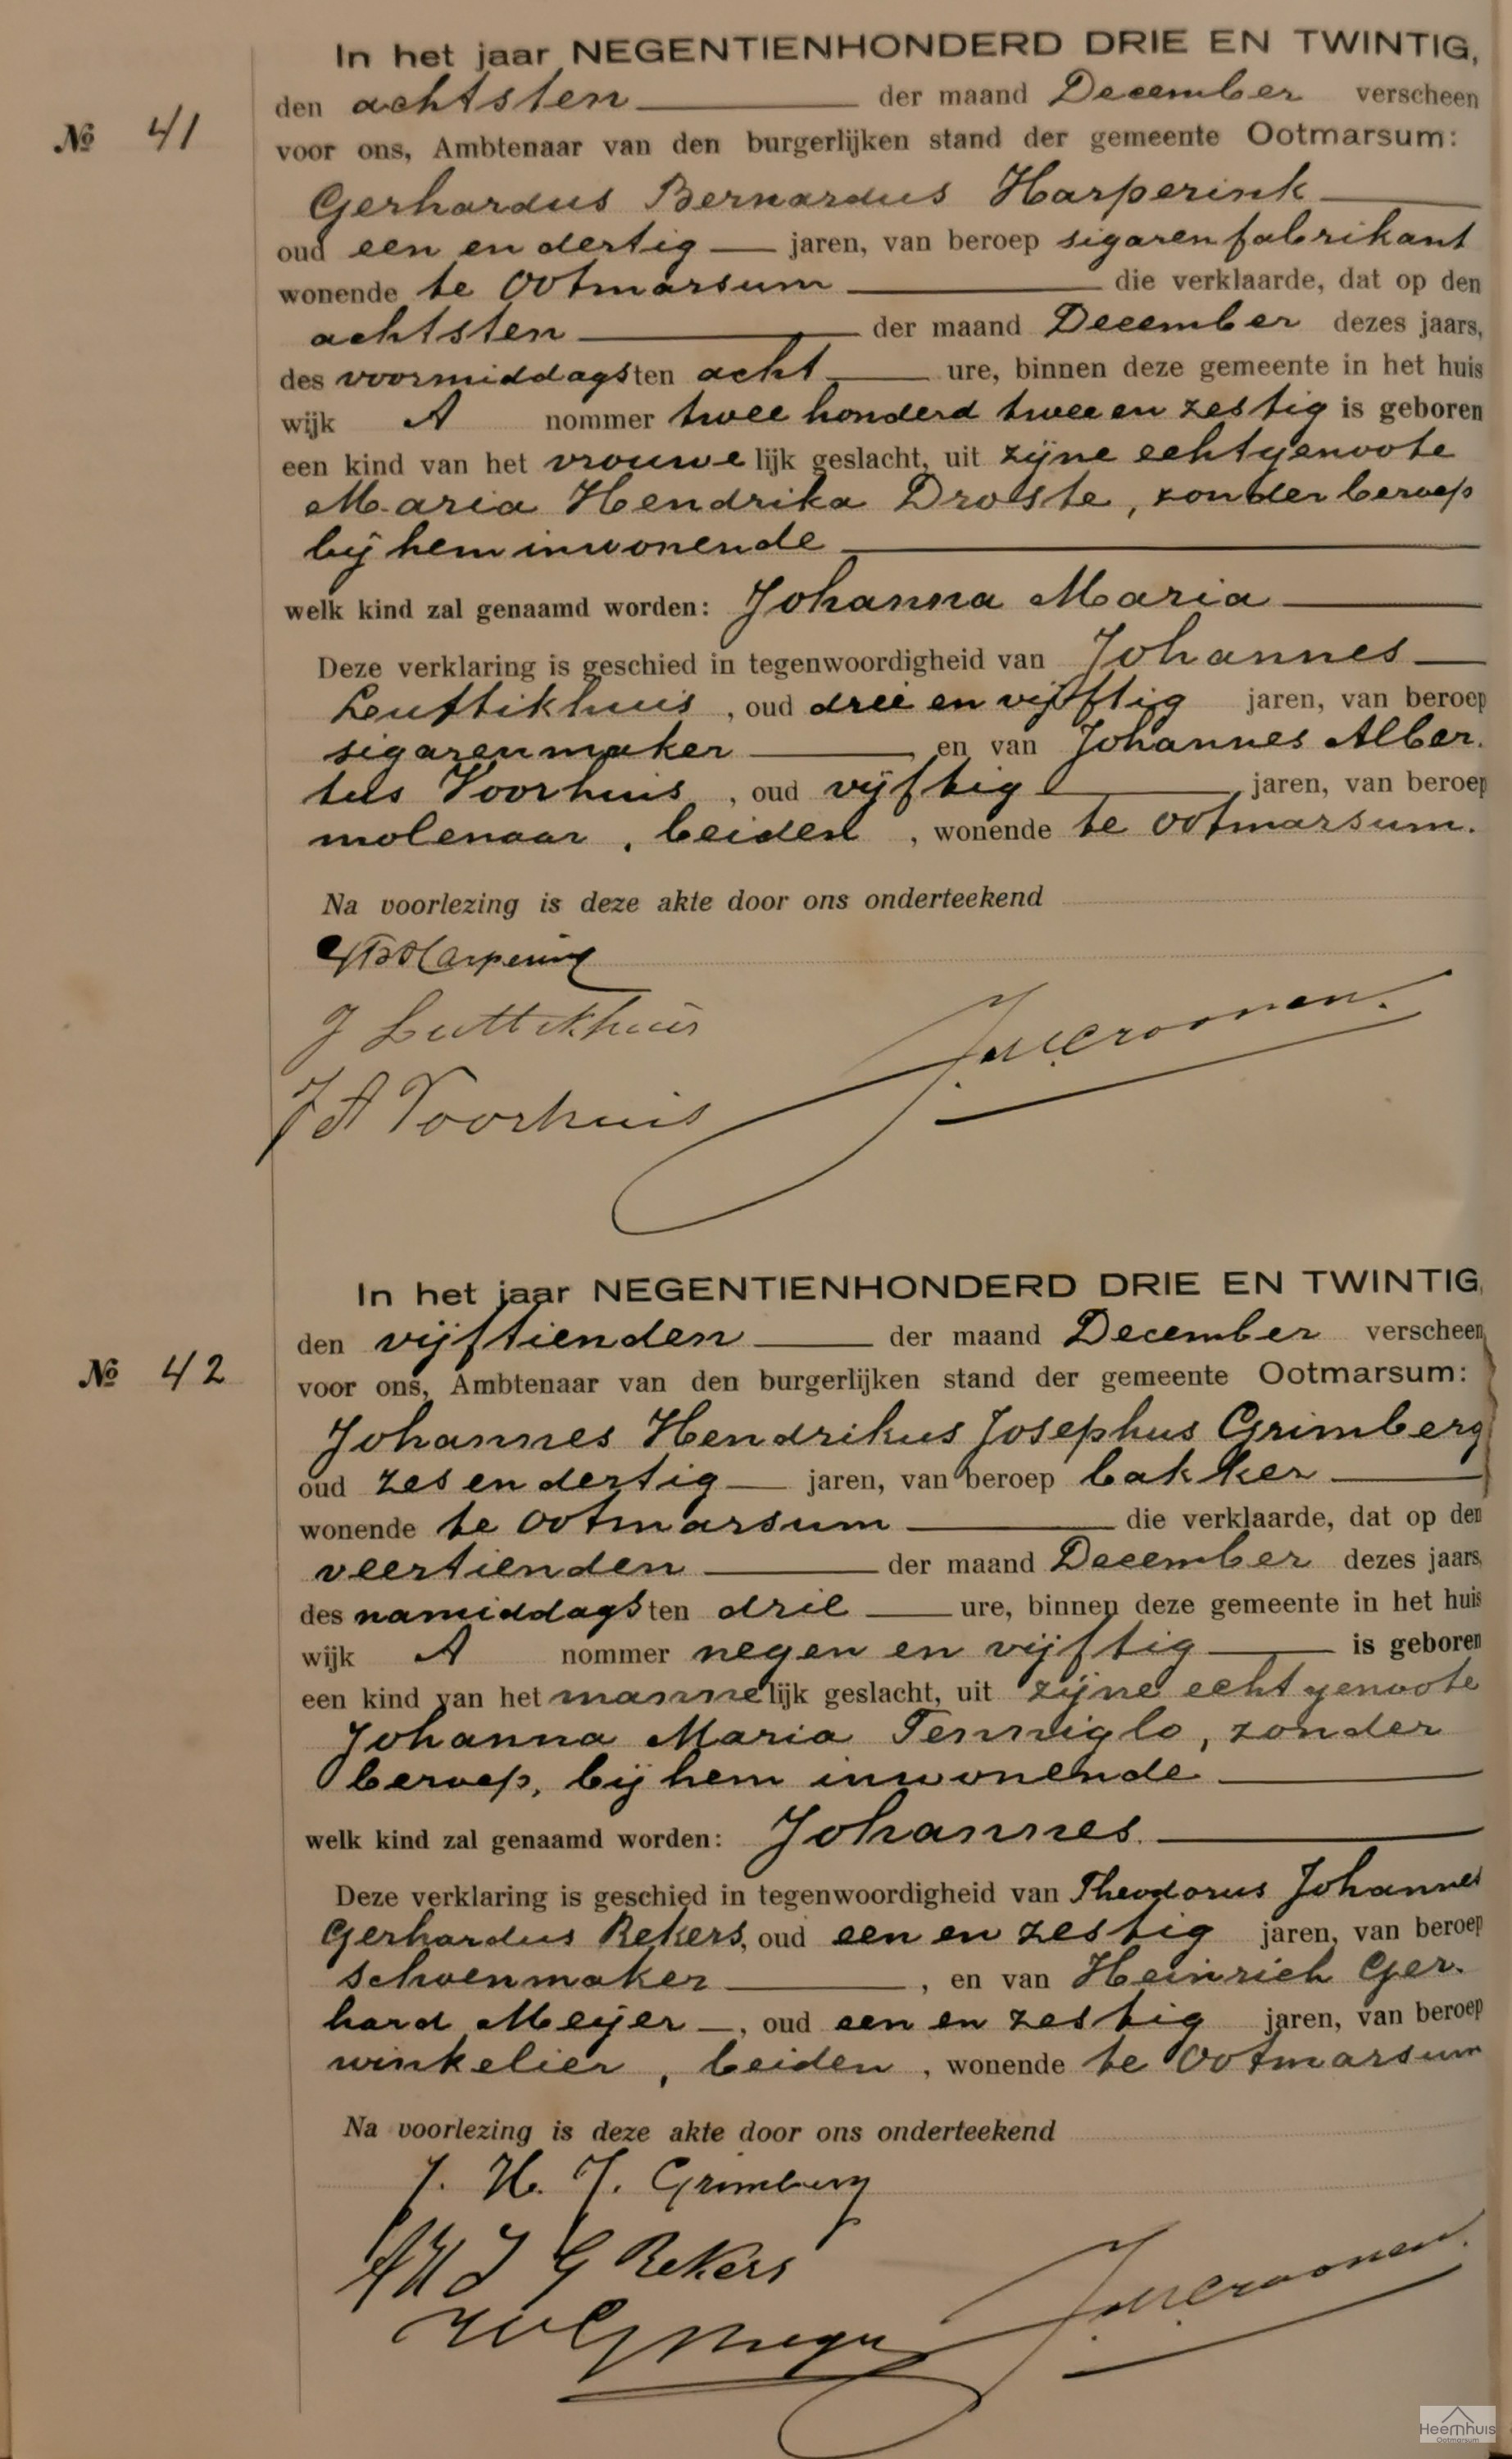 In het jaar NEGENTIENHONDERD DRIE EN TWINTIG,
den achtsten der maand December verscheen
№ 41
voor ons, Ambtenaar van den burgerlijken stand der gemeente Ootmarsum:
Gerhardus Bernardus Harperink
oud een en dertig jaren, van beroep sigarenfabrikant
wonende te Ootmarsum die verklaarde, dat op den
achtsten der maand December dezes jaars,
des voormiddags ten acht ure, binnen deze gemeente in het huis
wijk A nommer twee honderd twee en zestig is geboren
een kind van het vrouwelijk geslacht, uit zijne echtgenoote
Maria Hendrika Droste, zonder beroep
bij hem inwonende
welk kind zal genaamd worden: Johanna Maria
Deze verklaring is geschied in tegenwoordigheid van Johannes
Luttikhuis, oud drie en vijftig jaren, van beroep
sigarenmaker en van Johannes Alber-
tus Voorhuis, oud vijftig jaren, van beroep
molenaar, beiden, wonende te Ootmarsum.
Na voorlezing is deze akte door ons onderteekend
GB Harperink
J Luttikhuis
J A Voorhuis
In het jaar NEGENTIENHONDERD DRIE EN TWINTIG,
den vijftienden der maand December verscheen
№ 42
voor ons, Ambtenaar van den burgerlijken stand der gemeente Ootmarsum:
Johannes Hendrikus Josephus Grimberg
oud zes en dertig jaren, van beroep bakker
wonende te Ootmarsum die verklaarde, dat op den
veertienden der maand December dezes jaars,
des namiddags ten drie ure, binnen deze gemeente in het huis
wijk A nommer negen en vijftig is geboren
een kind van het mannelijk geslacht, uit zijne echtgenoote
Johanna Maria Tenniglo, zonder
beroep, bij hem inwonende
welk kind zal genaamd worden: Johannes.
Deze verklaring is geschied in tegenwoordigheid van Theodorus Johannes
Gerhardus Rekers, oud een en zestig jaren, van beroep
schoenmaker, en van Heinrich Ger-
hard Meijer, oud een en zestig jaren, van beroep
winkelier, beiden, wonende te Ootmarsum
Na voorlezing is deze akte door ons onderteekend
J. H. J. Grimberg
J G Rekers
Heemhuis
Ootmarsum